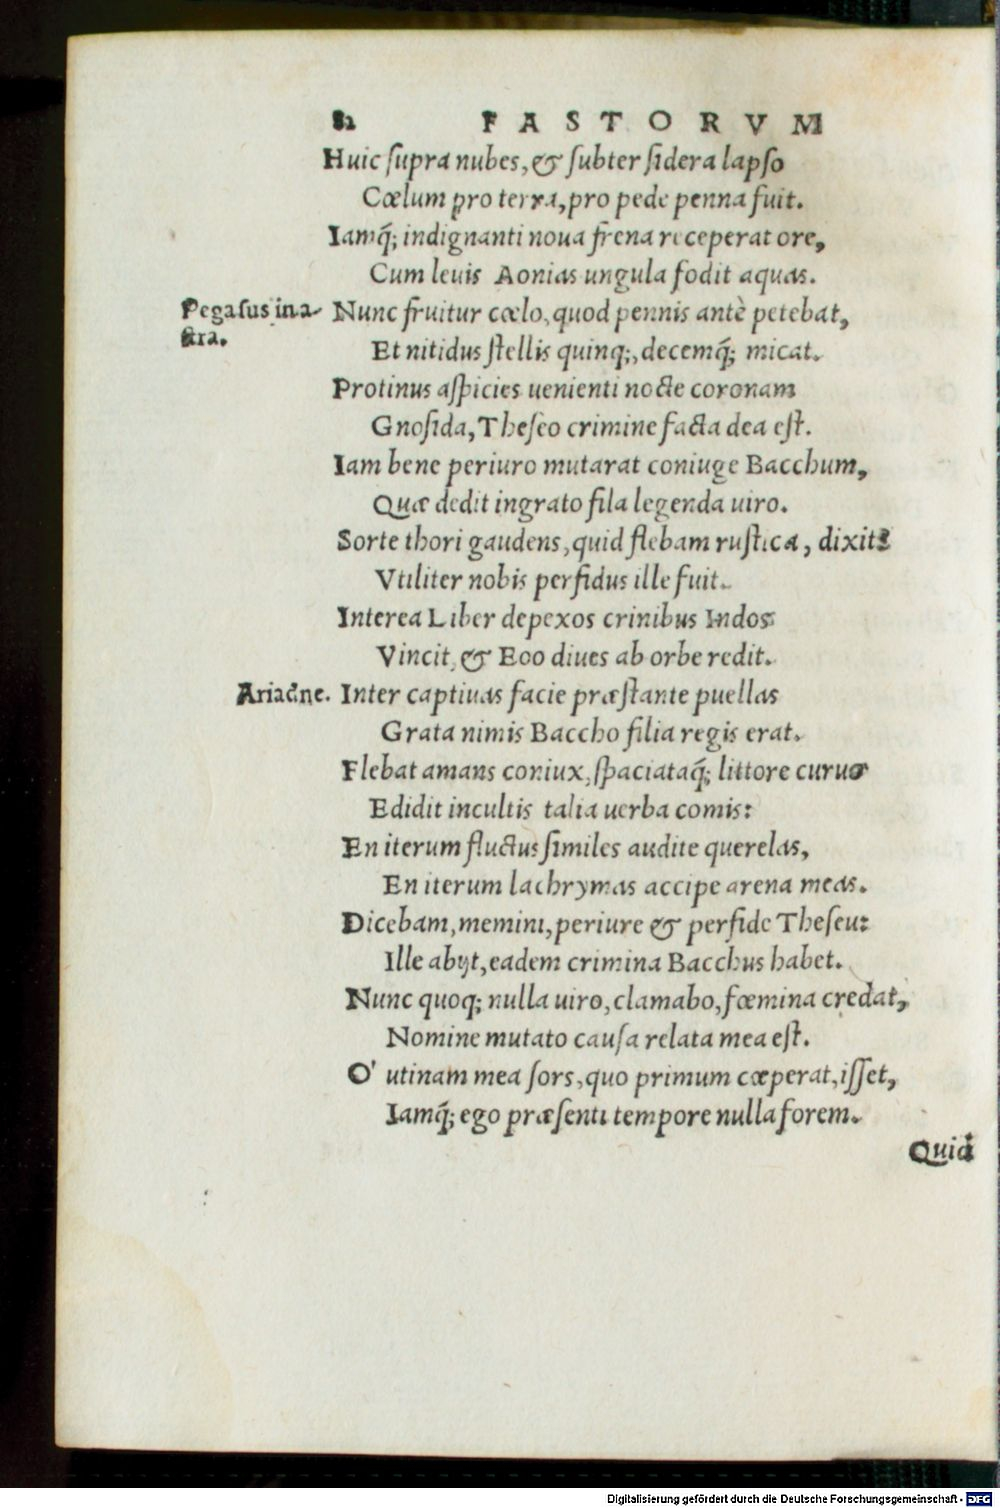 82 FASTORVM
Huic ſupra nubes, & ſubter ſidera lapſo
Cœlum pro terra, pro pede penna fuit.
Iamq́; indignanti noua frena receperat ore,
Cum leuis Aonias ungula fodit aquas.
Pegaſus in a-
ſtra.
Nunc fruitur cœlo, quod pennis antè petebat,
Et nitidus ſtellis quinq;, decemq́; micat.
Protinus aſpicies uenienti nocte coronam
Gnoſida, Theſeo crimine facta dea eſt.
Iam bene periuro mutarat coniuge Bacchum,
Quæ dedit ingrato fila legenda uiro.
Sorte thori gaudens, quid flebam ruſtica, dixit?
Vtiliter nobis perfidus ille fuit.
Interea Liber depexos crinibus Indos
Vincit, & Eoo diues ab orbe redit.
Ariadne.
Inter captiuas facie præſtante puellas
Grata nimis Baccho filia regis erat.
Flebat amans coniux, ſpaciataq́; littore curuo
Edidit incultis talia uerba comis:
En iterum fluctus ſimiles audite querelas,
En iterum lachrymas accipe arena meas.
Dicebam, memini, periure & perfide Theſeu:
Ille abijt, eadem crimina Bacchus habet.
Nunc quoq; nulla uiro, clamabo, fœmina credat,
Nomine mutato cauſa relata mea eſt.
O' utinam mea ſors, quo primum cœperat, iſſet,
Iamq́; ego præſenti tempore nulla forem.
Quid
Digitalisierung gefördert durch die Deutsche Forschungsgemeinschaft - DFG